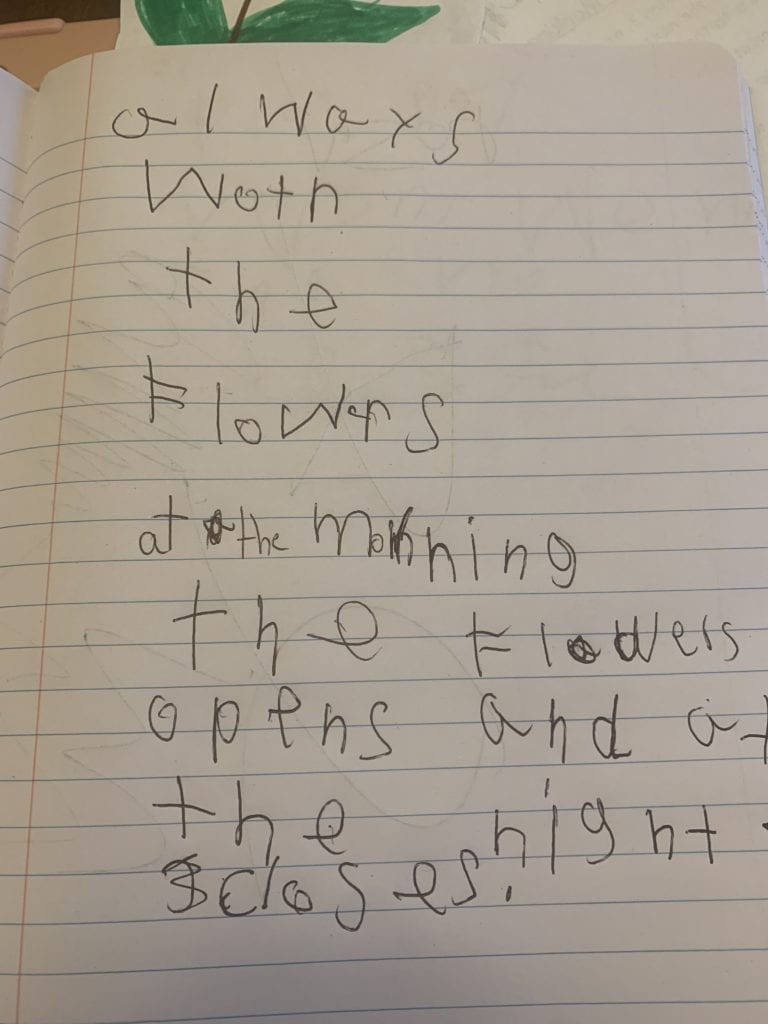 always
Woth
the
Flowers
at the morning
the Flowers
opens and at
the night
closes.